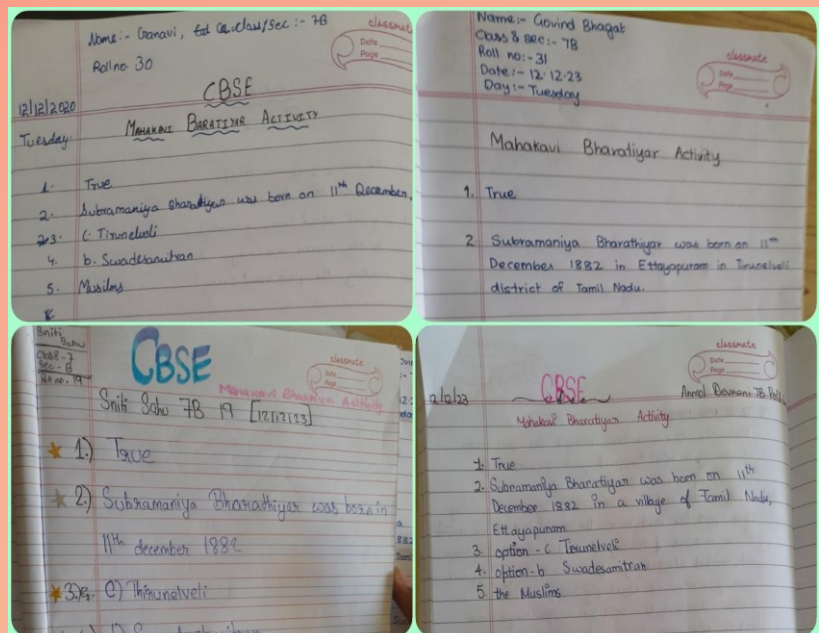 Name:- Ganavi, Class/Sec :- 7B
Roll no 30
classmate
Date
Page
CBSE
12/12/2020
Tuesday
MAHAKAVI BARATIYAR ACTIVITY
1. True
2. Subramaniya Bharatiyar was born on 11th December,
3. C. Tirunelveli
4. b. Swadesamitran
5. Musilms
Name:- Govind Bhagat
Class & sec:- 7B
Roll no:- 31
Date:- 12.12.23
Day:- Tuesday
classmate
Date
Page
Mahakavi Bharatiyar Activity
1. True
2 Subramaniya Bharathiyar was born on 11th
December 1882 in Ettayapuram in Tirunelveli
district of Tamil Nadu.
Sniti
Sahu
Class-7
Sec-B
Roll no.-19
CBSE
classmate
Date
Page
Mahakavi Bharatiya Activity
Sniti Sahu 7B 19 [12/12/23]
1.) True
2.) Subramaniya Bharathiyar was born in
11th december 1882
3. C) Thirunelveli
classmate
Date
Page
12/12/23
CBSE
Anmol Devnani 7B
Mahakavi Bharatiyar Activity
1. True
2. Subramaniya Bharatiyar was born on 11th
December 1882 in a village of Tamil Nadu,
Ettayapuram
3. option - c Tirunelveli
4. option-b Swadesamitran
5. the Muslims